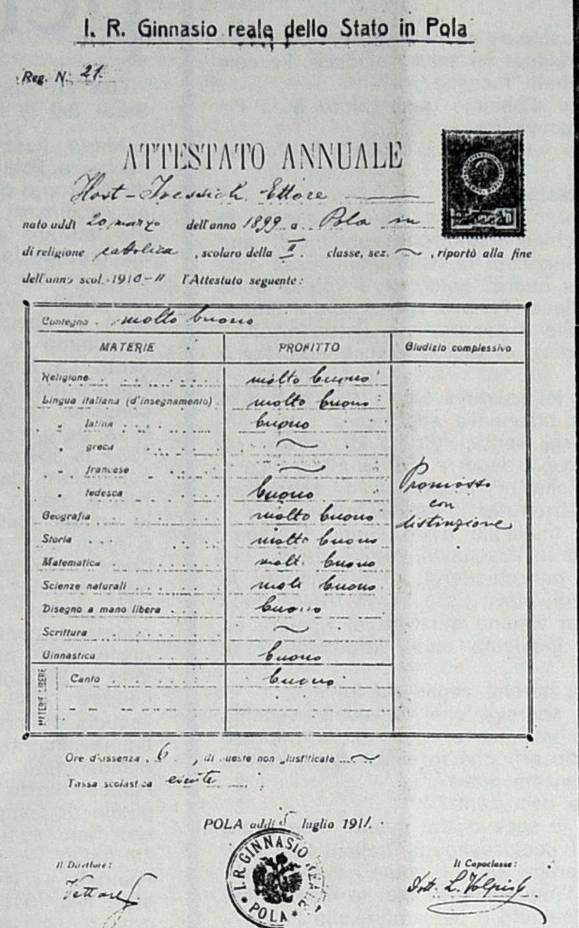 I. R. Ginnasio reale dello Stato in Pola
Reg. N. 21.
ATTESTATO ANNUALE
Host-Ivessich Ettore
nato addì 20 marzo dell'anno 1899 a Pola in
di religione cattolica, scolaro della II classe, sez. ~, riportò alla fine
dell'anno scol. 1910-11 l'Attestato seguente:
Contegno molto buono
MATERIE PROFITTO Giudizio complessivo
Religione molto buono
Lingua italiana (d'insegnamento) molto buono
" latina buono
" greca ~
" francese ~
" tedesca buono
Promosso con distinzione
Geografia molto buono
Storia molto buono
Matematica molt. buono
Scienze naturali molt. buono
Disegno a mano libera buono
Scrittura ~
Ginnastica buono
MATERIE LIBERE
Canto buono
Ore d'assenza 6, di queste non giustificate ~
Tassa scolastica esente
POLA addì 5 luglio 1911.
I. R. GINNASIO REALE
POLA
Il Direttore:
Il Capoclasse:
Dott. L. Volpis